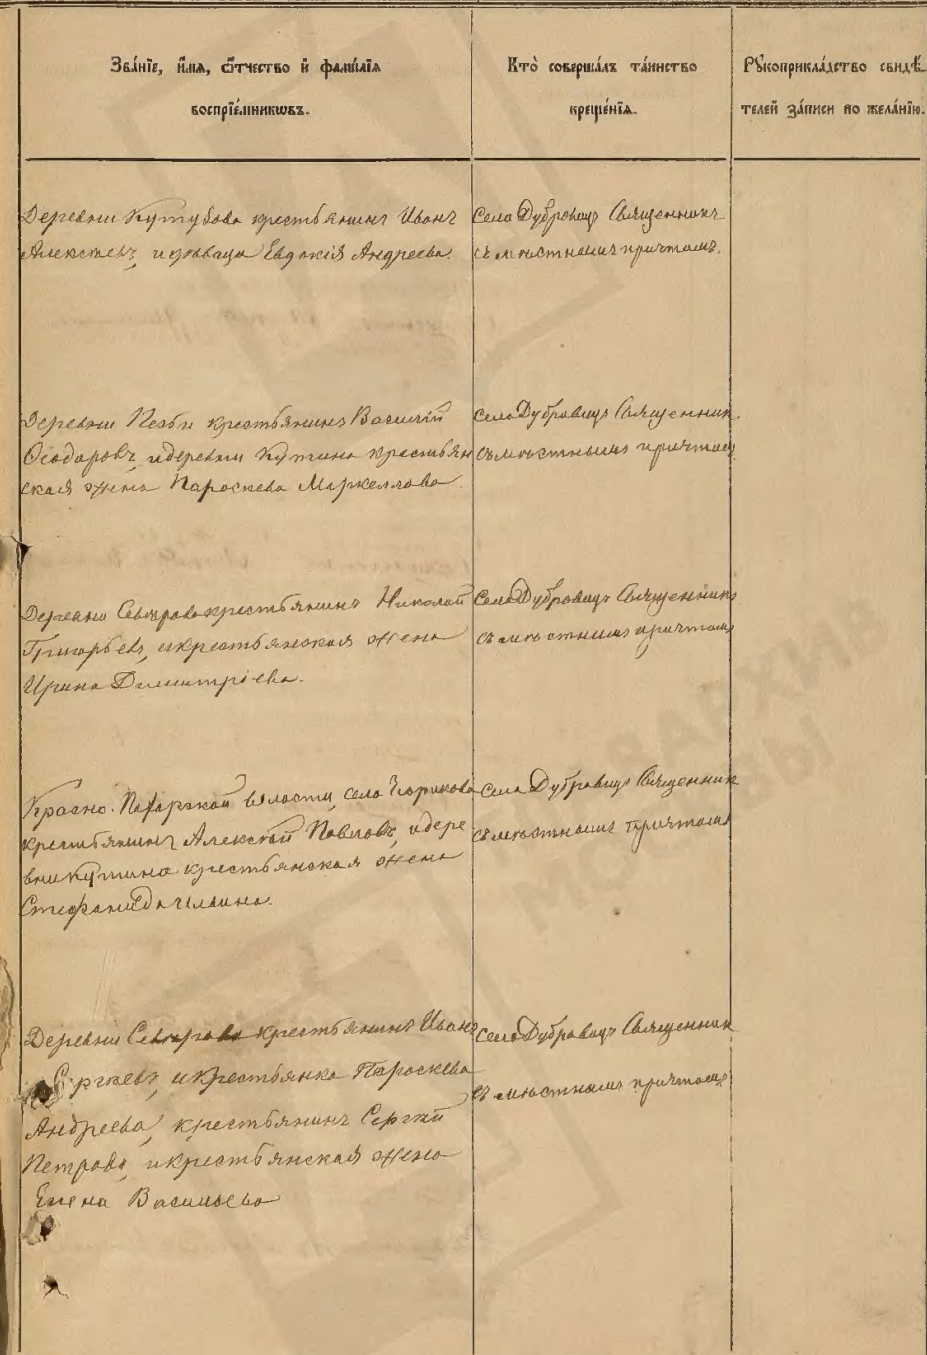 Зва́нїе, и́мя, ѻ́тчество и҆ фамилїя
воспрїе́мникѡвъ.
Кто̀ соверша́лъ та́инство
креще́нїя.
Рꙋкоприкла́дство свидѣ́-
телей за́писи по жела́нїю.
Деревни Кутубова крестьянинъ Иванъ
Алексѣевъ, и Евдокія Андреева.
Села Дубровицъ Священникъ
съ мѣстнымъ причтомъ.
Деревни крестьянинъ Василій
Ѳеодоровъ, и деревни Кутина крестьян
ская жена Параскева Маркеллова.
Села Дубровицъ Священник
съ мѣстнымъ причтомъ
Деревни Сѣверова крестьянинъ Николай
Григорьевъ, и крестьянская жена
Ирина Димитріева.
Села Дубровицъ Священникъ
съ мѣстнымъ причтомъ
Красно-Пахорской волости, села
крестьянинъ Алексѣй Павловъ, и дере
вни Кутина крестьянская жена
Стефанида Ильина.
Села Дубровицъ Священник
съ мѣстнымъ причтомъ
Деревни Северова крестьянинъ Иванъ
Сергѣевъ, и крестьянка Параскева
Андреева, крестьянинъ Сергѣй
Петровъ, и крестьянская жена
Елена Васильева
Села Дубровицъ Священник
съ мѣстнымъ причтомъ